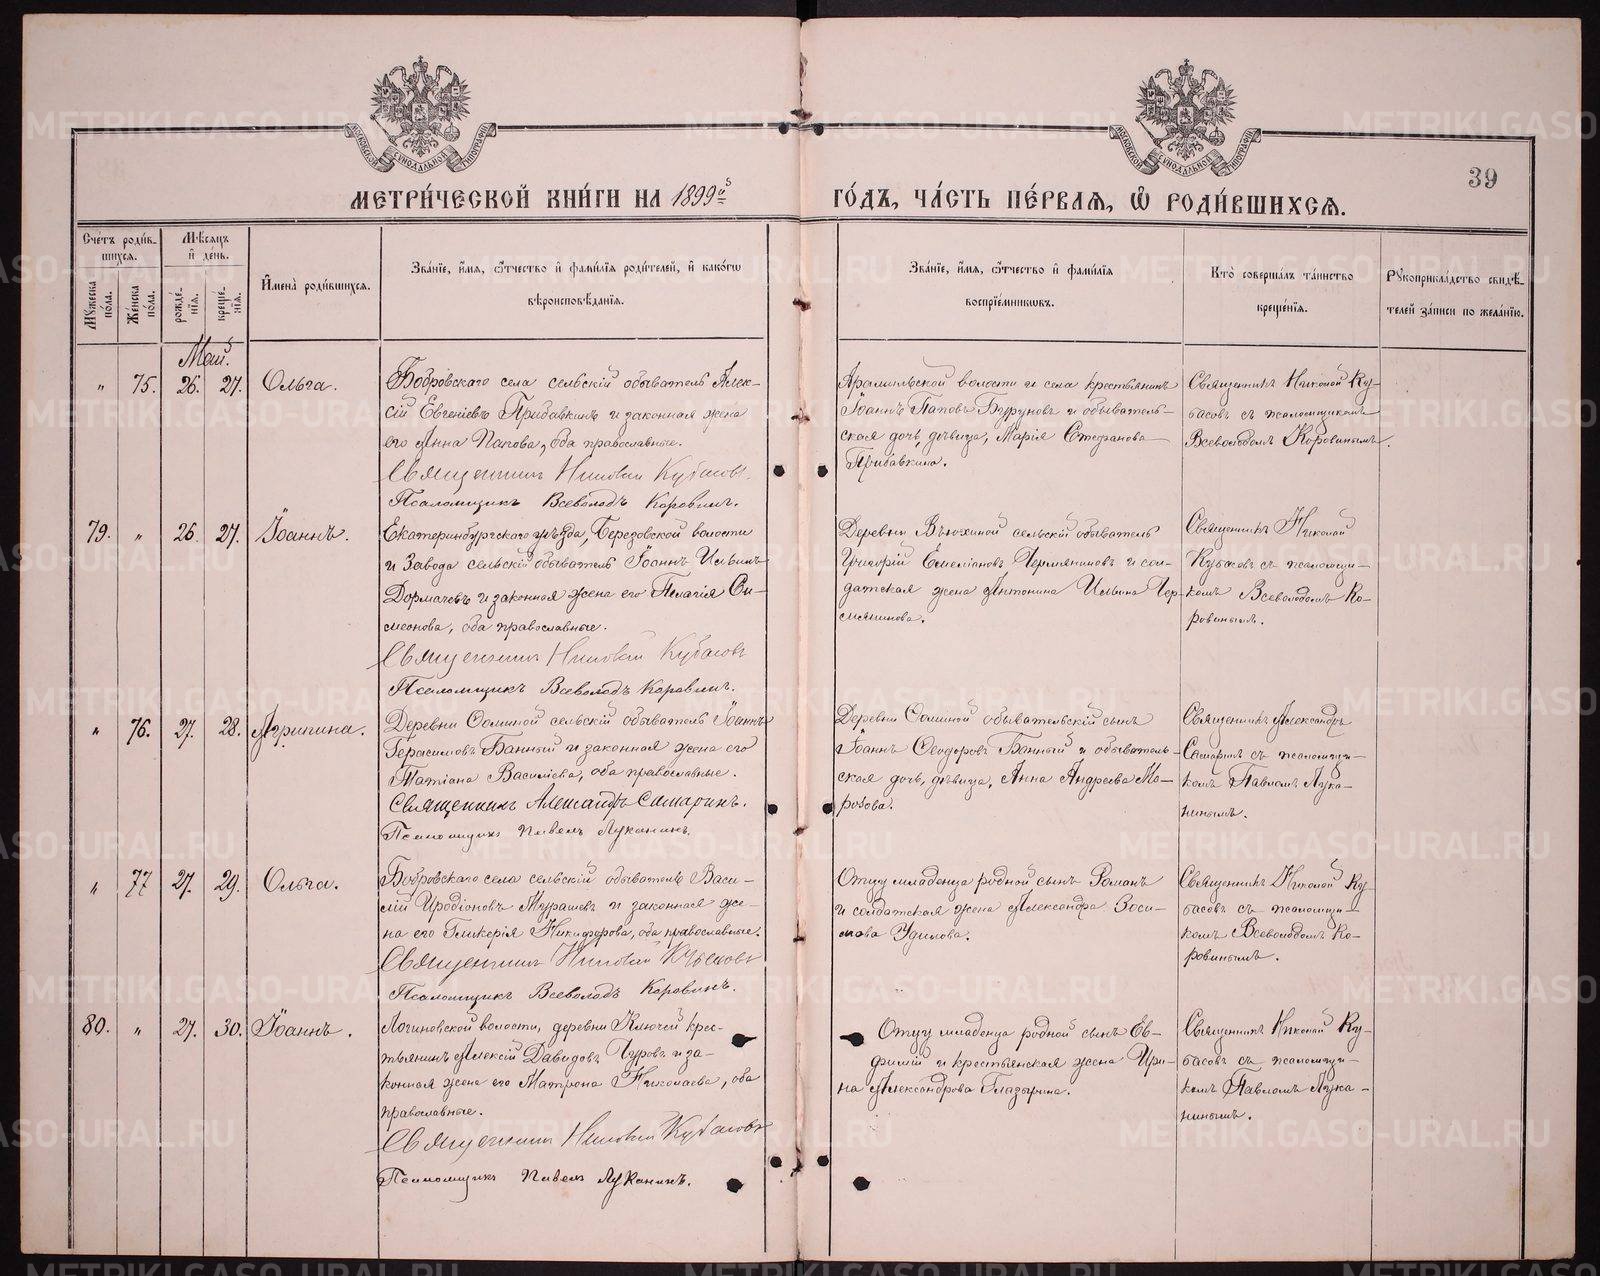 МЕТРИ́ЧЕСКОЙ КНИ́ГИ НА 1899й
ГО́ДЪ, ЧА́СТЬ ПЕ́РВАЯ, Ѿ РОДИ́ВШИХСЯ.
39
Сче́тъ роди́в-
шихся.
Мꙋжеска пола.
Же́нска по́ла.
Мѣ́сяцъ
и҆ де́нь.
рожде́нїя.
креще́нїя.
И҆мена̀ роди́вшихся.
Зва́нїе, и҆́мя, ѻ҆́тчество и҆ фами́лїя роди́телей, и҆ како́гѡ
вѣроисповѣ́данїя.
Зва́нїе, и҆́мя, ѻ҆́тчество и҆ фами́лїя
воспрїе́мниковъ.
Кто̀ соверша́лъ та́инство
креще́нїя.
Рꙋкоприкла́дство свидѣ́-
телей за́писи по жела́нїю.
Май.
" 75. 26. 27. Ольга.
Бобровскаго села сельскій обыватель Алек-
сій Евгеніевъ Прибавкинъ и законная жена
его Анна Папова, оба православные.
Священникъ Николай Кубасовъ.
Псаломщикъ Всеволодъ Коровинъ.
Арамильской волости и села крестьянинъ
Іоаннъ Паповъ Буруновъ и обыватель-
ская дочь, дѣвица, Марія Стефанова
Прибавкина.
Священникъ Николай Ку-
басовъ съ псаломщикомъ
Всеволодомъ Коровинымъ.
79. " 26. 27. Іоаннъ.
Екатеринбургскаго уѣзда, Березовской волости
и Завода сельскій обыватель Іоаннъ Ильинъ
Дормачевъ и законная жена его Пелагія Си-
меонова, оба православные.
Священникъ Николай Кубасовъ
Псаломщикъ Всеволодъ Коровинъ.
Деревни Вьюхиной сельскій обыватель
Григорій Емеліановъ Чермяниновъ и сол-
датская жена Антонина Ильина Чер-
мянинова.
Священникъ Николай
Кубасовъ съ псаломщи-
комъ Всеволодомъ Ко-
ровинымъ.
" 76. 27. 28. Агрипина.
Деревни Фоминой сельскій обыватель Іоаннъ
Герасимовъ Банный и законная жена его
Татіана Василіева, оба православные.
Священникъ Александръ Самаринъ.
Псаломщикъ Павелъ Луканинъ.
Деревни Фоминой обывательскій сынъ
Іоаннъ Ѳеодоровъ Банный и обыватель-
ская дочь, дѣвица, Анна Андреева Мо-
розова.
Священникъ Александръ
Самаринъ съ псаломщи-
комъ Павломъ Лука-
нинымъ.
" 77 27. 29. Ольга.
Бобровскаго села сельскій обыватель Васи-
лій Иродіоновъ Мурашевъ и законная же-
на его Гликерія Никифорова, оба православные.
Священникъ Николай Кубасовъ
Псаломщикъ Всеволодъ Коровинъ.
Отцу младенца родной сынъ Романъ
и солдатская жена Александра Зоси-
мова Удилова.
Священникъ Николай Ку-
басовъ съ псаломщи-
комъ Всеволодомъ Ко-
ровинымъ.
80. " 27. 30. Іоаннъ.
Логиновской волости, деревни Ключей крес-
тьянинъ Алексій Давидовъ Чуровъ и за-
конная жена его Матрона Николаева, оба
православные.
Священникъ Николай Кубасовъ
Псаломщикъ Павелъ Луканинъ.
Отцу младенца родной сынъ Ев-
фимій и крестьянская жена Ири-
на Александрова Глазырина.
Священникъ Николай Ку-
басовъ съ псаломщи-
комъ Павломъ Лука-
нинымъ.